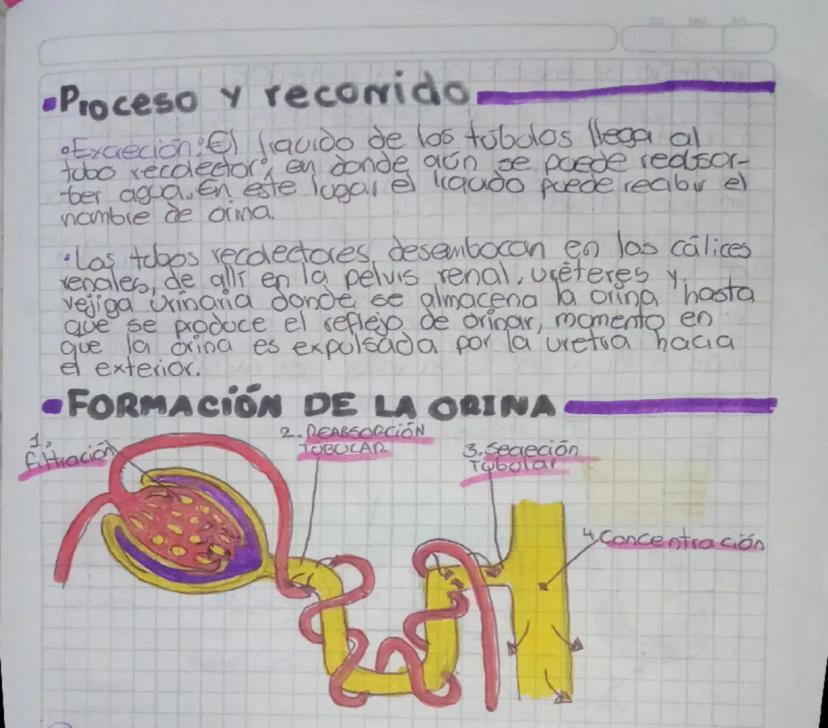 Proceso y recorrido
Excreción: El líquido de los tubulos llega al
tubo recolector, en donde aún se puede reabsor-
ber agua. En este lugar el líquido puede recibir el
nombre de orina.
Los tubos recolectores desembocan en los cálices
renales, de allí en la pelvis renal, uréteres y,
vejiga urinaria donde se almacena la orina hasta
que se produce el reflejo de orinar, momento en
que la orina es expulsada por la uretra hacia
el exterior.
FORMACIÓN DE LA ORINA
1.
Filtración
2. REABSORCIÓN
TUBULAR
3. Secreción
Tubular
4. Concentración